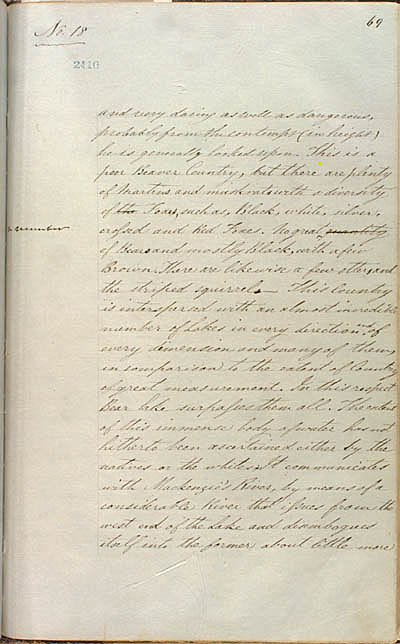 No. 18
69
2410
and very daring as well as dangerous,
probably from the contempt (in height)
he is generally looked upon. This is a
poor Beaver Country, but there are plenty
of Martins and muskrats with a diversity
of the Foxes, such as, Black, white, silver,
crossed and Red Foxes. No great quantity
number
of Bears and mostly Black, with a few
Brown. There are likewise a few otters, and
the striped squirrel. This Country
is interspersed with an almost incredible
number of Lakes in every direction and of
every dimension and many of them,
in comparison to the extent of Country
of great measurement. In this respect
Bear Lake surpasses them all. The extent
of this immense body of water has not
hitherto been ascertained either by the
natives or the whites. It communicates
with Mackenzie's River, by means of a
considerable River that issues from the
west end of the Lake and disembogues
itself into the former about little more